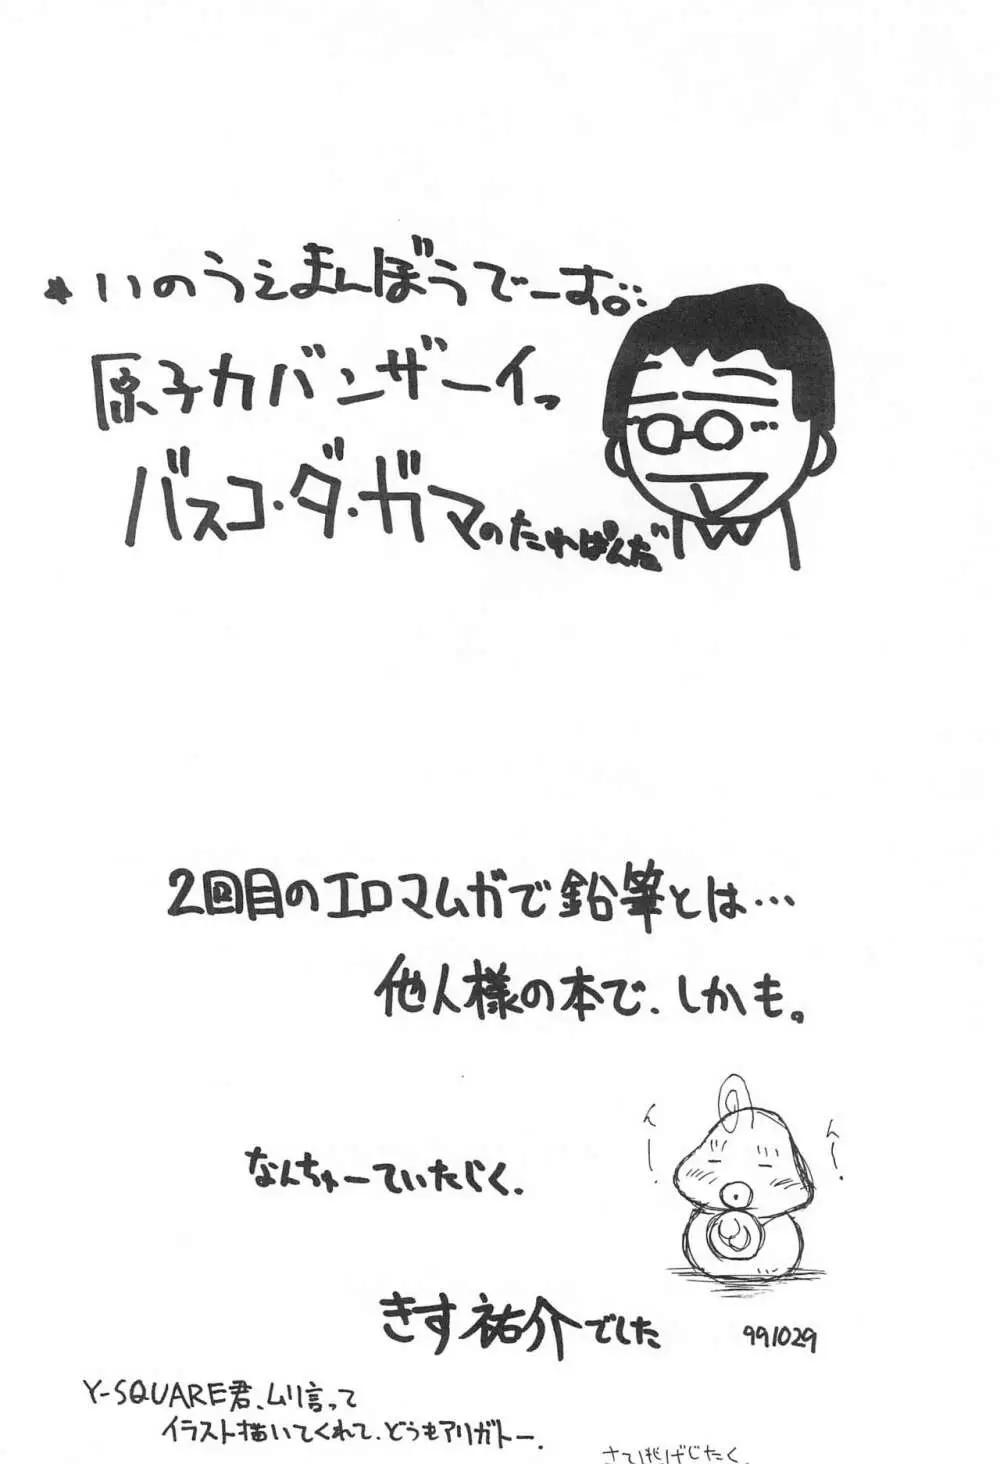 ★いのうえまんぼうでーす。
原子力バンザーイっ
バスコ・ダ・ガマのたれぱんだ
2回目のエロマムガで鉛筆とは…
他人様の本で、しかも。
んー。
んー。
なんちゅーていたらく.
きす祐介でした
991029
Y-SQUARE君、ムリ言って
イラスト描いてくれて、どうもアリガトー.